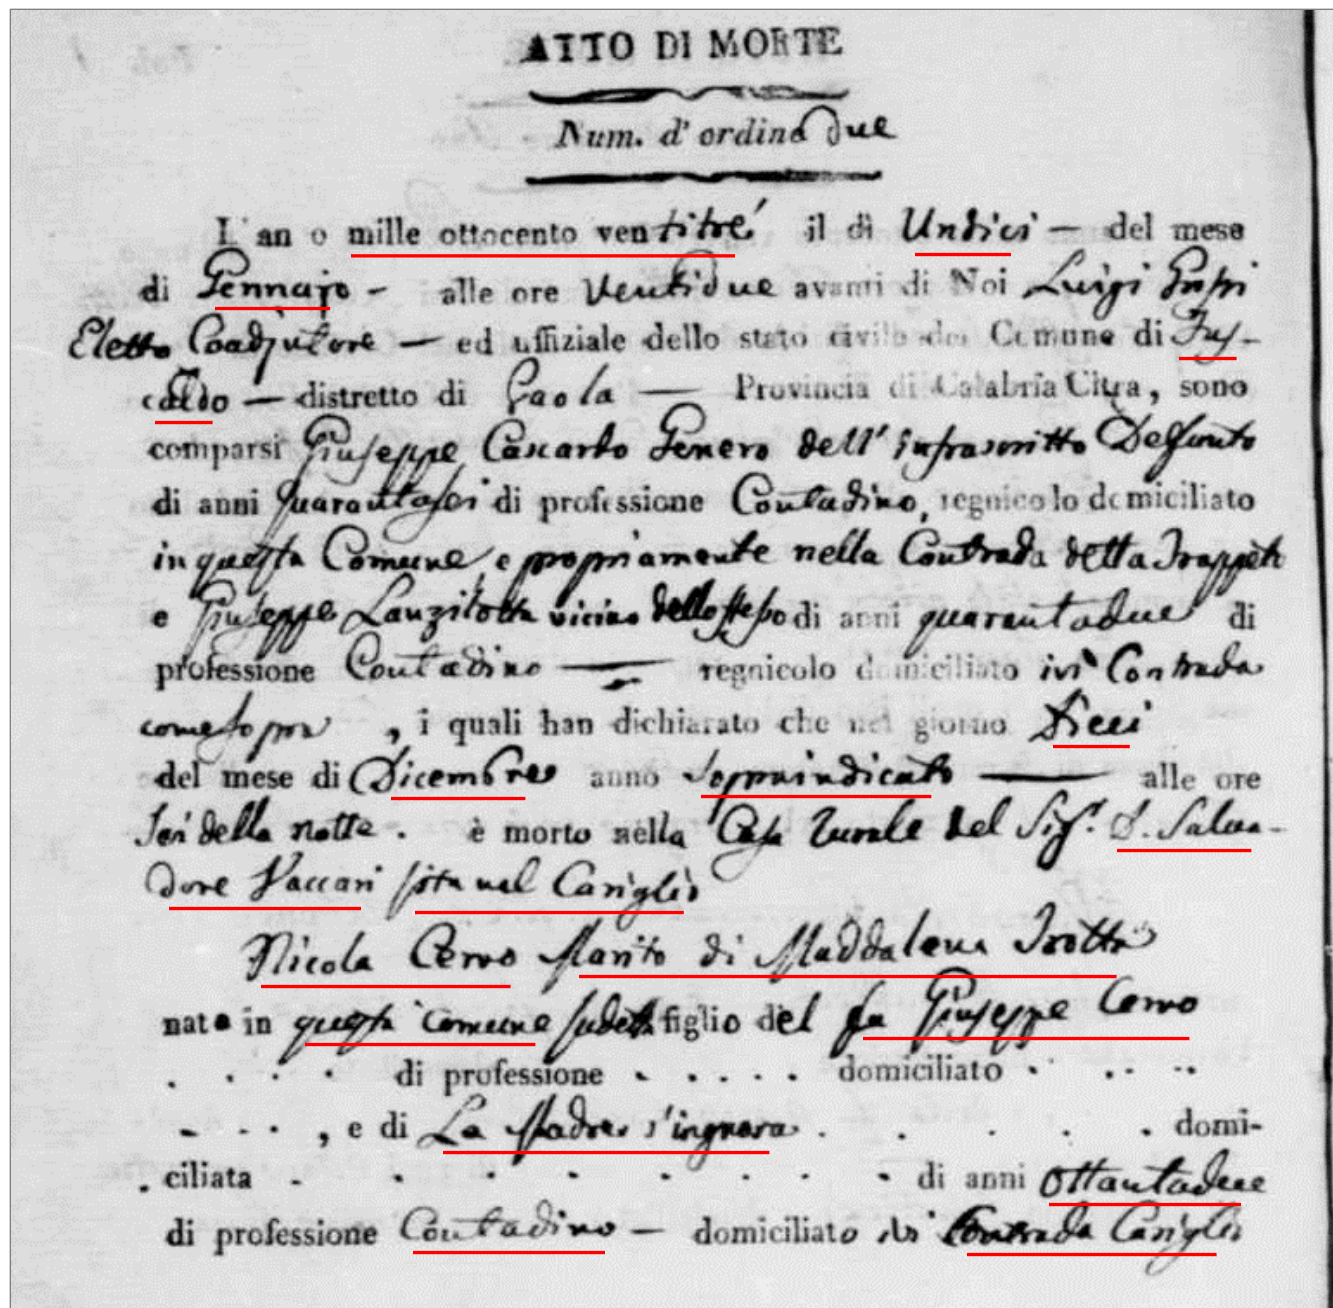 ATTO DI MORTE
Num. d' ordine due
L' an o mille ottocento ventitre' il dì Undici — del mese
di Gennajo - alle ore Ventidue avanti di Noi Luigi
Eletto Coadjutore — ed uffiziale dello stato civile del Comune di Fus-
caldo — distretto di Paola — Provincia di Calabria Citra, sono
comparsi Giuseppe Genero dell' infrascritto Defunto
di anni quarantasei di professione Contadino, regnicolo domiciliato
in questa Comune e propriamente nella Contrada detta
e Giuseppe Lanzilotta vicino dello stesso di anni quarantadue di
professione Contadino — regnicolo domiciliato ivi Contrada
come sopra , i quali han dichiarato che nel giorno Dieci
del mese di Dicembre anno Sopraindicato — alle ore
Sei della notte . è morto nella Casa Rurale del Sig.r D. Salva-
dore Vaccari sita nel Cariglio
Nicola Cervo Marito di Maddalena Trotta
nato in questa comune sudetta figlio del fu Giuseppe Cervo
. . . . di professione . . . . . domiciliato . . . . .
- - . . , e di La Madre s'ignora . . . . . domi-
. ciliata - . . . . . . . di anni Ottantadue
di professione Contadino — domiciliato ivi Contrada Cariglio